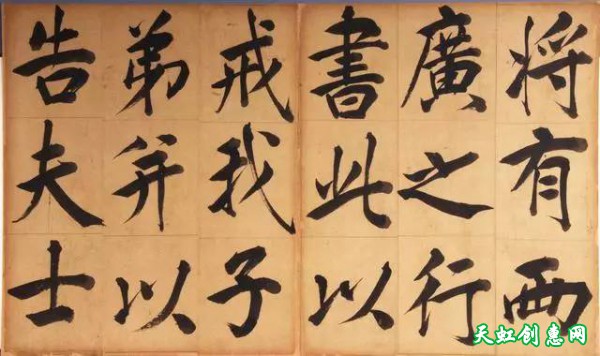 将有西
廣之行
書此以
戒我子
弟并以
告夫士
天虹创惠网